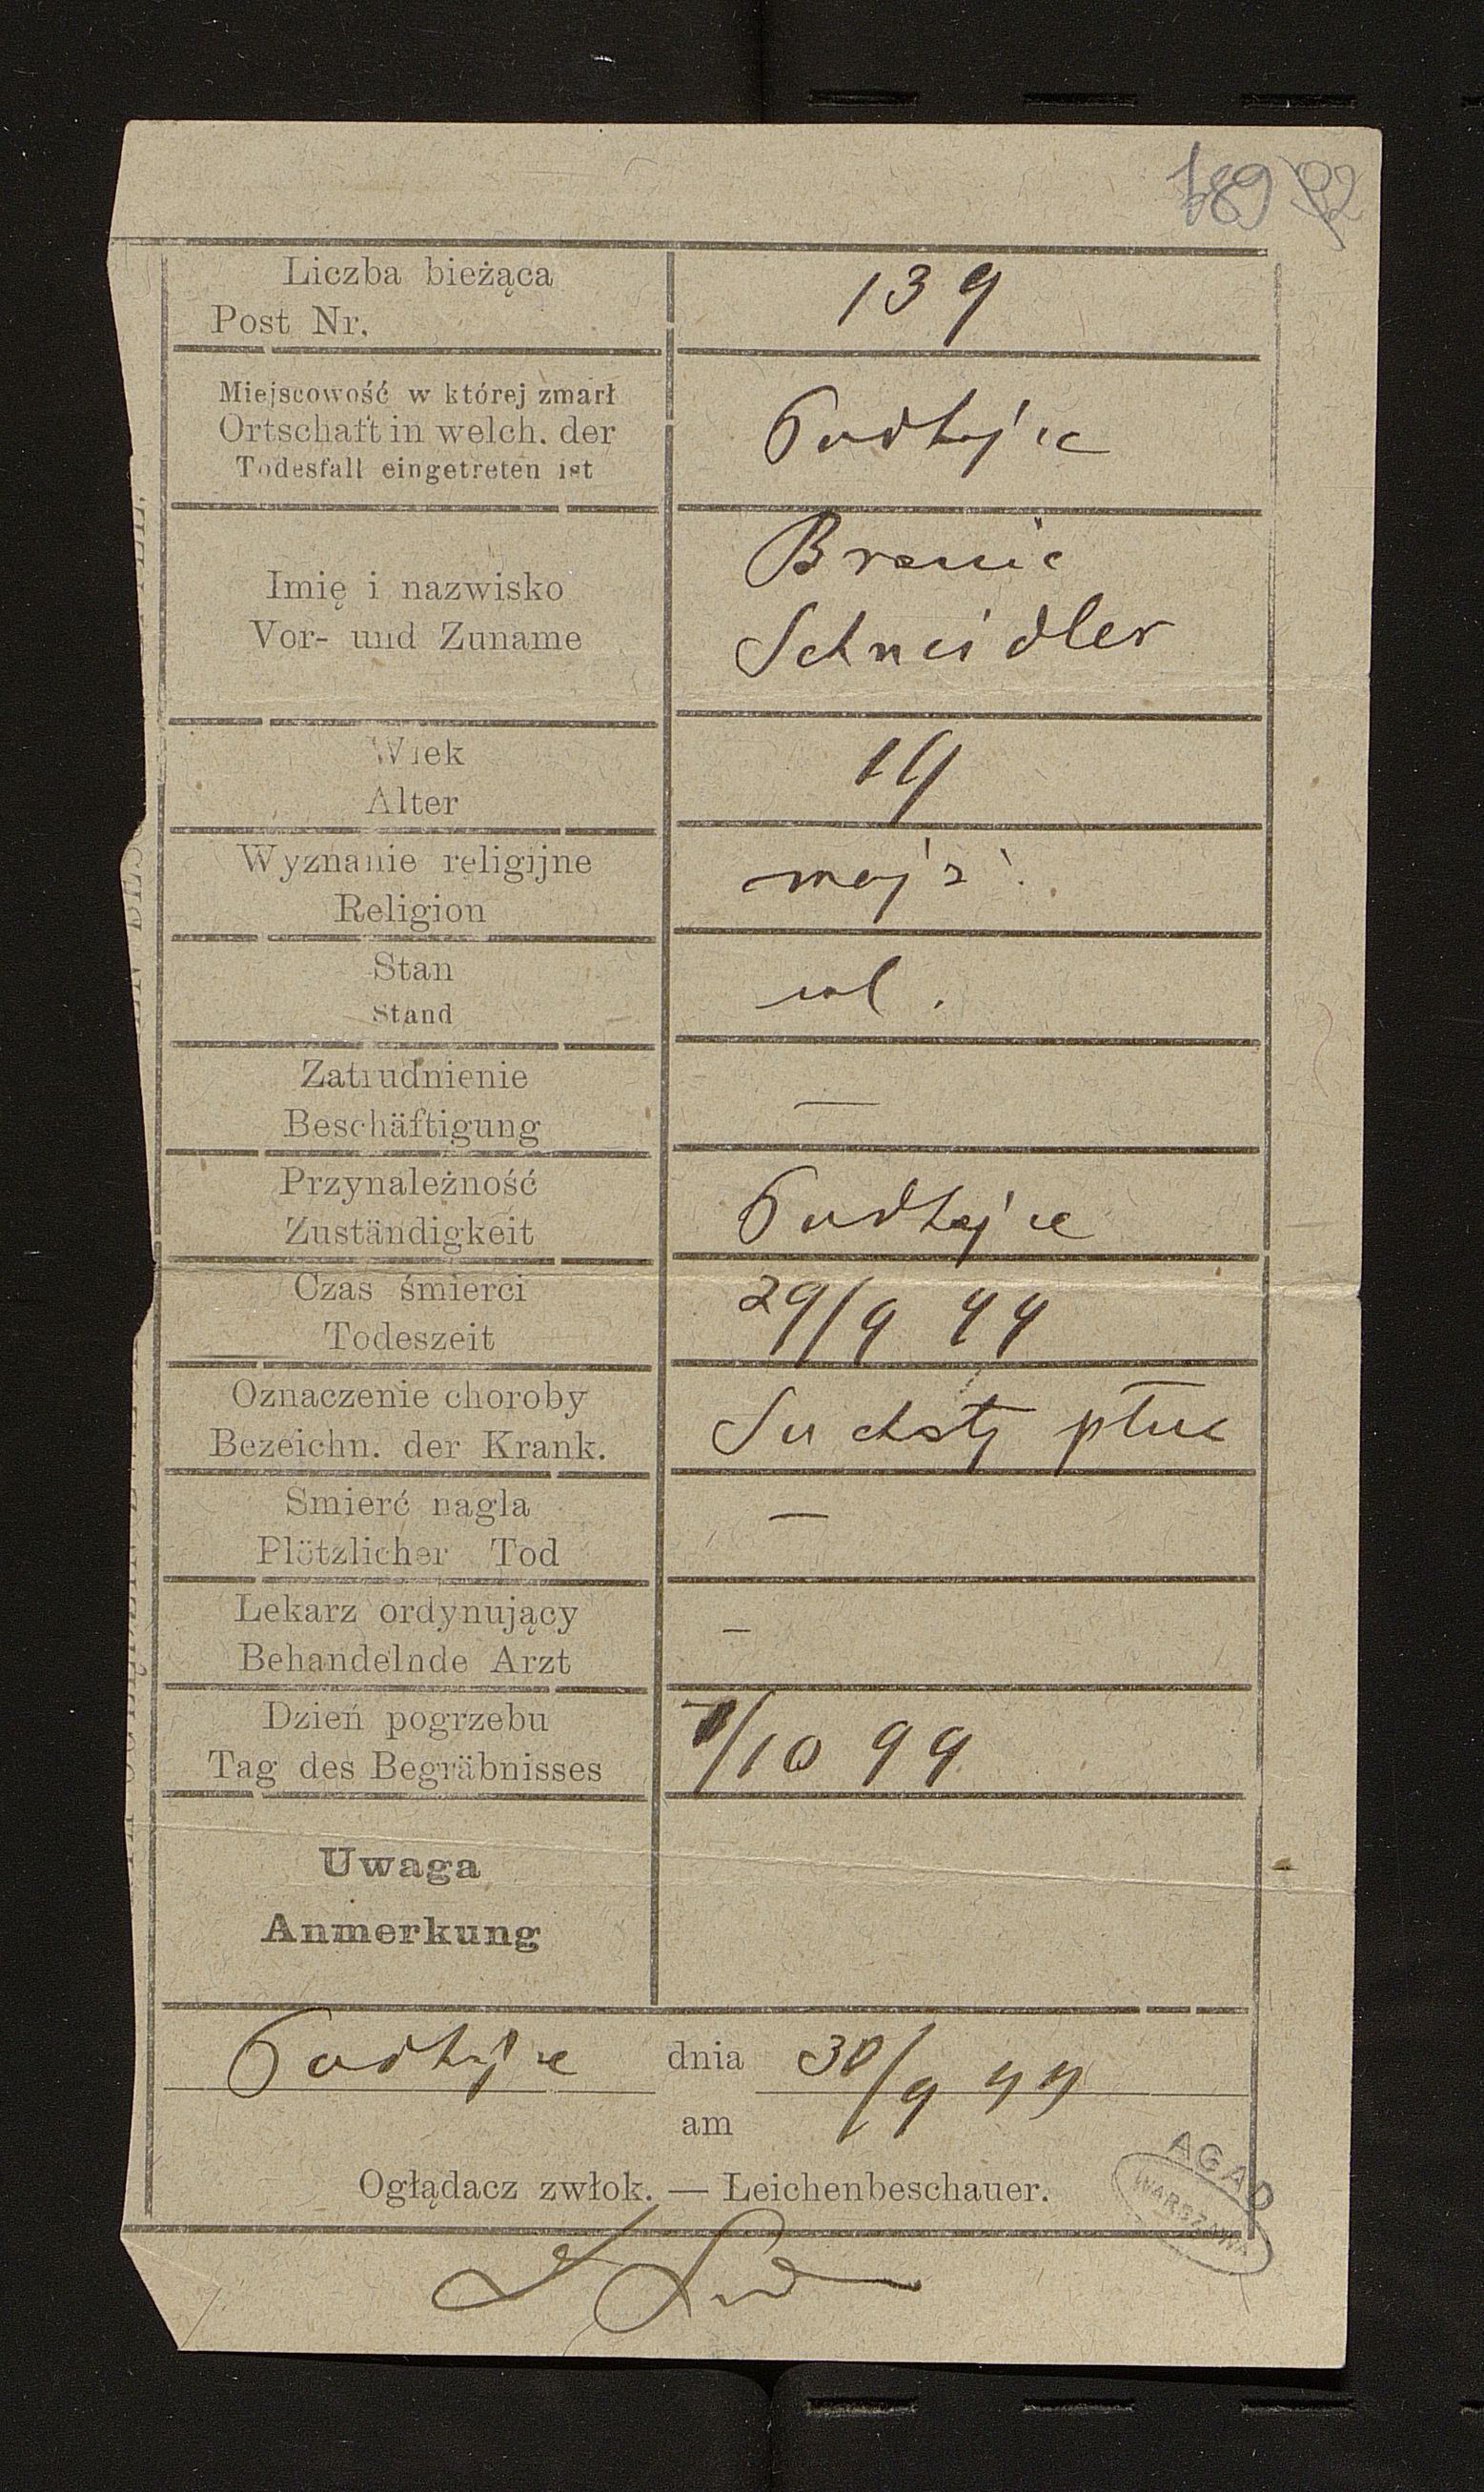 189 92
Liczba bieżąca
Post Nr.
139
Miejscowość w której zmarł
Ortschaft in welch. der
Todesfall eingetreten ist
Podhajce
Imię i nazwisko
Vor- und Zuname
Schneidler
Wiek
Alter
19
Wyznanie religijne
Religion
mojż.
Stan
Stand
wol.
Zatrudnienie
Beschäftigung
—
Przynależność
Zuständigkeit
Podhajce
Czas śmierci
Todeszeit
29/9 99
Oznaczenie choroby
Bezeichn. der Krank.
Suchoty płuc
Śmierć nagla
Plötzlicher Tod
—
Lekarz ordynujący
Behandelnde Arzt
—
Dzień pogrzebu
Tag des Begräbnisses
1/10 99
Uwaga
Anmerkung
Podhajce dnia 30/9 99
am
Oglądacz zwłok. — Leichenbeschauer.
AGAD
WARSZAWA